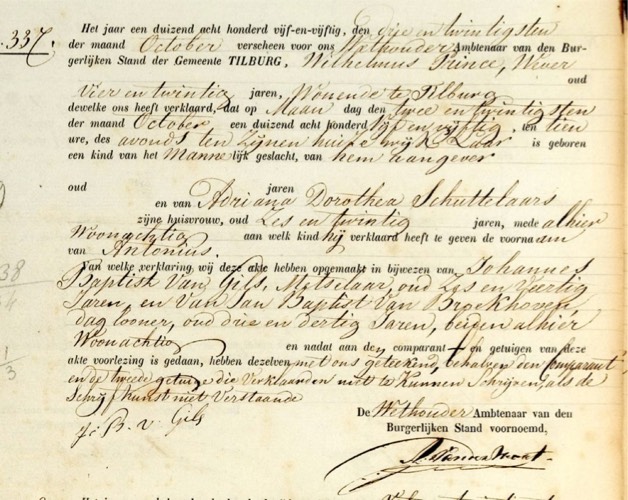 337.
Het jaar een duizend acht honderd vijf-en-vijftig, den drie en twintigsten
der maand October verscheen voor ons Wethouder Ambtenaar van den Bur-
gerlijken Stand der Gemeente TILBURG, Wilhelmus Prince, Wever
oud
Vier en twintig jaren, Wonende te Tilburg
dewelke ons heeft verklaard, dat op Maan dag den twee en twintigsten
der maand October een duizend acht honderd vijf en vijftig, ten tien
ure, des avonds ten Zijnen huize wijk Laar is geboren
een kind van het Manne lijk geslacht, van hem aangever
oud jaren
en van Adriana Dorothea Schuttelaars
zijne huisvrouw, oud Zes en twintig jaren, mede alhier
Woonachtig aan welk kind hij verklaard heeft te geven de voornaam
van Antonius.
Van welke verklaring wij deze akte hebben opgemaakt in bijwezen van Johannes
Baptist Van Gils, Metselaar, oud Zes en Veertig
Jaren, en Van Jan Baptist Van Broekhoven
dag looner, oud drie en dertig Jaren, beiden alhier
Woonachtig en nadat aan de comparant en getuigen van deze
akte voorlezing is gedaan, hebben dezelven met ons geteekend, behalven den Comparant
en de tweede getuige die Verklaarden niet te Kunnen Schrijven, als de
Schrijf Kunst niet Verstaande
J. B. v. Gils
De Wethouder Ambtenaar van den
Burgerlijken Stand voornoemd,
38
1
3